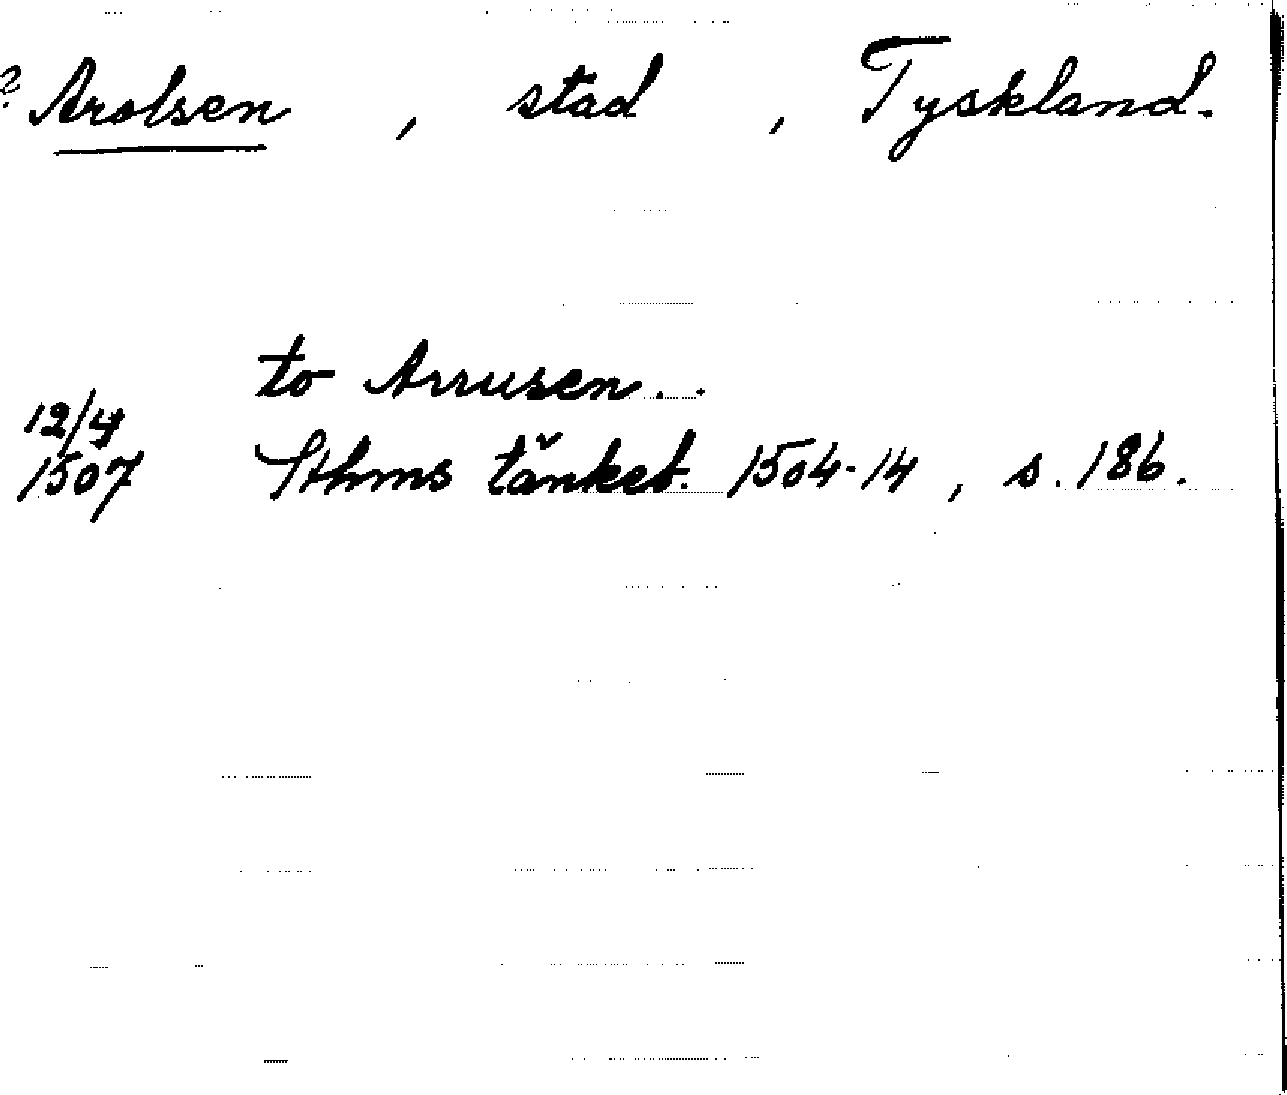 ? Arolsen , stad , Tyskland.
to Arrusen..
12/4
1507 Sthms tänkeb. 1504-14 , s. 186.